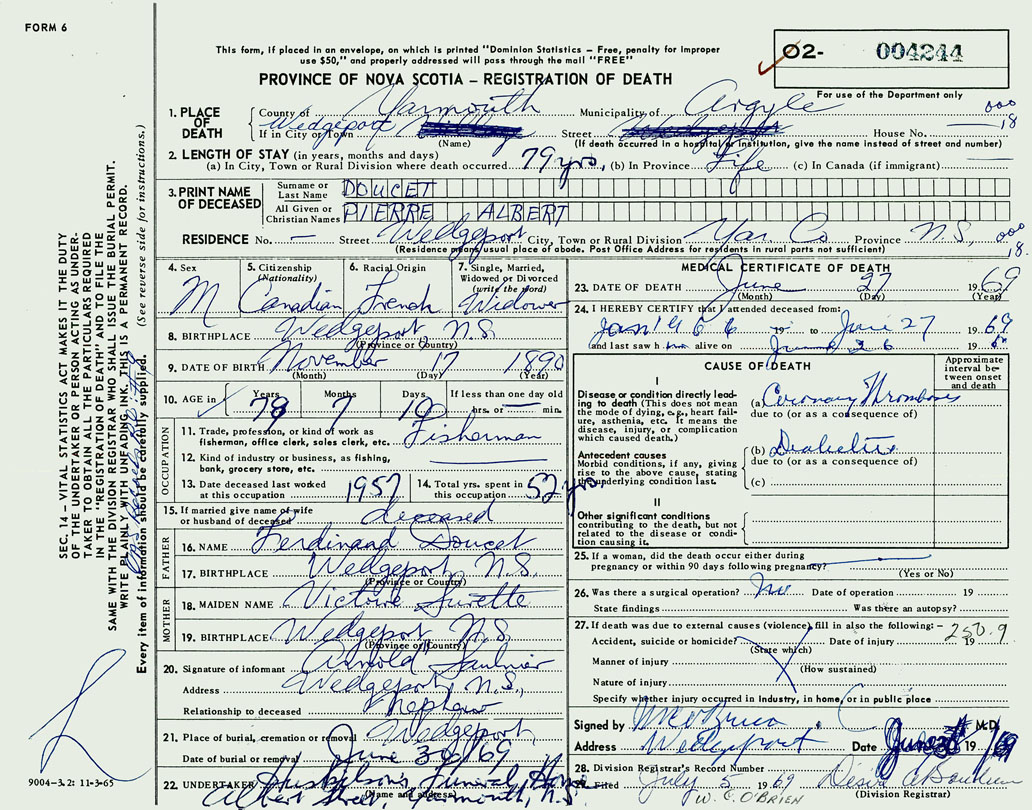 FORM 6
This form, if placed in an envelope, on which is printed "Dominion Statistics – Free, penalty for improper
use $50," and properly addressed will pass through the mail "FREE"
PROVINCE OF NOVA SCOTIA – REGISTRATION OF DEATH
O2- 004244
For use of the Department only
1. PLACE OF DEATH
County of Yarmouth Municipality of Argyle 000
18
If in City or Town Wedgeport Street House No.
(Name) (If death occurred in a hospital or institution, give the name instead of street and number)
2. LENGTH OF STAY (in years, months and days)
(a) In City, Town or Rural Division where death occurred 79 yrs, (b) In Province Life (c) In Canada (if immigrant)
3. PRINT NAME OF DECEASED
Surname or Last Name DOUCET
All Given or Christian Names PIERRE ALBERT
RESIDENCE No. — Street Wedgeport City, Town or Rural Division Yar Co. Province N.S, 000
18.
(Residence means usual place of abode. Post Office Address for residents in rural parts not sufficient)
4. Sex M
5. Citizenship (Nationality) Canadian
6. Racial Origin French
7. Single, Married, Widowed or Divorced (write the word) Widower
8. BIRTHPLACE Wedgeport, N.S.
(Province or Country)
9. DATE OF BIRTH November 17 1890
(Month) (Day) (Year)
10. AGE in Years 78 Months 7 Days 10 If less than one day old
hrs. or — min.
OCCUPATION
11. Trade, profession, or kind of work as
fisherman, office clerk, sales clerk, etc. Fisherman
12. Kind of industry or business, as fishing,
bank, grocery store, etc.
13. Date deceased last worked at this occupation 1957
14. Total yrs. spent in this occupation 52 yrs.
15. If married give name of wife
or husband of deceased deceased
FATHER
16. NAME Ferdinand Doucet
17. BIRTHPLACE Wedgeport, N.S.
(Province or Country)
MOTHER
18. MAIDEN NAME Victoire Surette
19. BIRTHPLACE Wedgeport N.S.
(Province or Country)
20. Signature of informant Arnold Saulnier
Address Wedgeport, N.S.,
Relationship to deceased Nephew
21. Place of burial, cremation or removal Wedgeport,
Date of burial or removal June 30/69
22. UNDERTAKER Huskilson's Funeral Home
(Name and address)
Albert Street, Yarmouth, N.S.
MEDICAL CERTIFICATE OF DEATH
23. DATE OF DEATH June 27 1969
(Month) (Day) (Year)
24. I HEREBY CERTIFY that I attended deceased from:
Jan 1966 19 to June 27 1969
and last saw him alive on June 26 19
CAUSE OF DEATH
Approximate interval between onset and death
I
Disease or condition directly leading to death (This does not mean
the mode of dying, e.g., heart failure, asthenia, etc. It means the
disease, injury, or complication
which caused death.)
(a) Coronary Thrombosis
due to (or as a consequence of)
Antecedent causes
Morbid conditions, if any, giving
rise to the above cause, stating
the underlying condition last.
(b)
due to (or as a consequence of)
(c)
II
Other significant conditions
contributing to the death, but not
related to the disease or condition causing it.
25. If a woman, did the death occur either during
pregnancy or within 90 days following pregnancy?
(Yes or No)
26. Was there a surgical operation? no Date of operation 19
State findings Was there an autopsy?
27. If death was due to external causes (violence), fill in also the following: – 250.9
Accident, suicide or homicide? Date of injury 19
(State which)
Manner of injury
(How sustained)
Nature of injury
Specify whether injury occurred in Industry, in home, or in public place
Signed by M.D.
Address Wedgeport Date June 19 69
28. Division Registrar's Record Number
29. Filed July 5 1969
W. C. O'BRIEN (Division Registrar)
SEC. 14 – VITAL STATISTICS ACT MAKES IT THE DUTY
OF THE UNDERTAKER OR PERSON ACTING AS UNDER-
TAKER TO OBTAIN ALL THE PARTICULARS REQUIRED
IN THE "REGISTRATION OF DEATH" AND TO FILE THE
SAME WITH THE DIVISION REGISTRAR WHO SHALL ISSUE THE BURIAL PERMIT.
WRITE PLAINLY, WITH UNFADING INK. THIS IS A PERMANENT RECORD.
Every item of information should be carefully supplied. (See reverse side for instructions.)
9004-3.2: 11-3-65